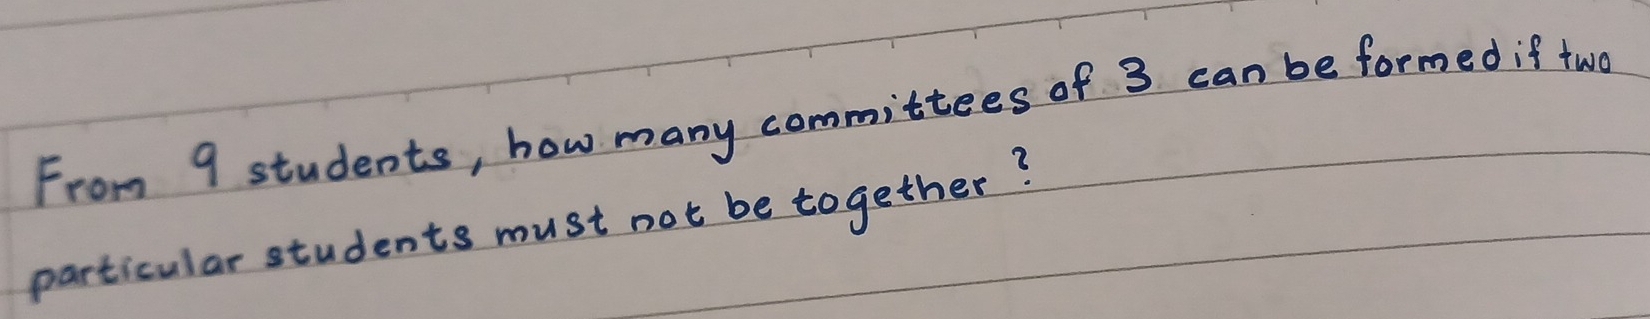 From 9 students, how many committees of 3 can be formed if two
particular students must not be together?